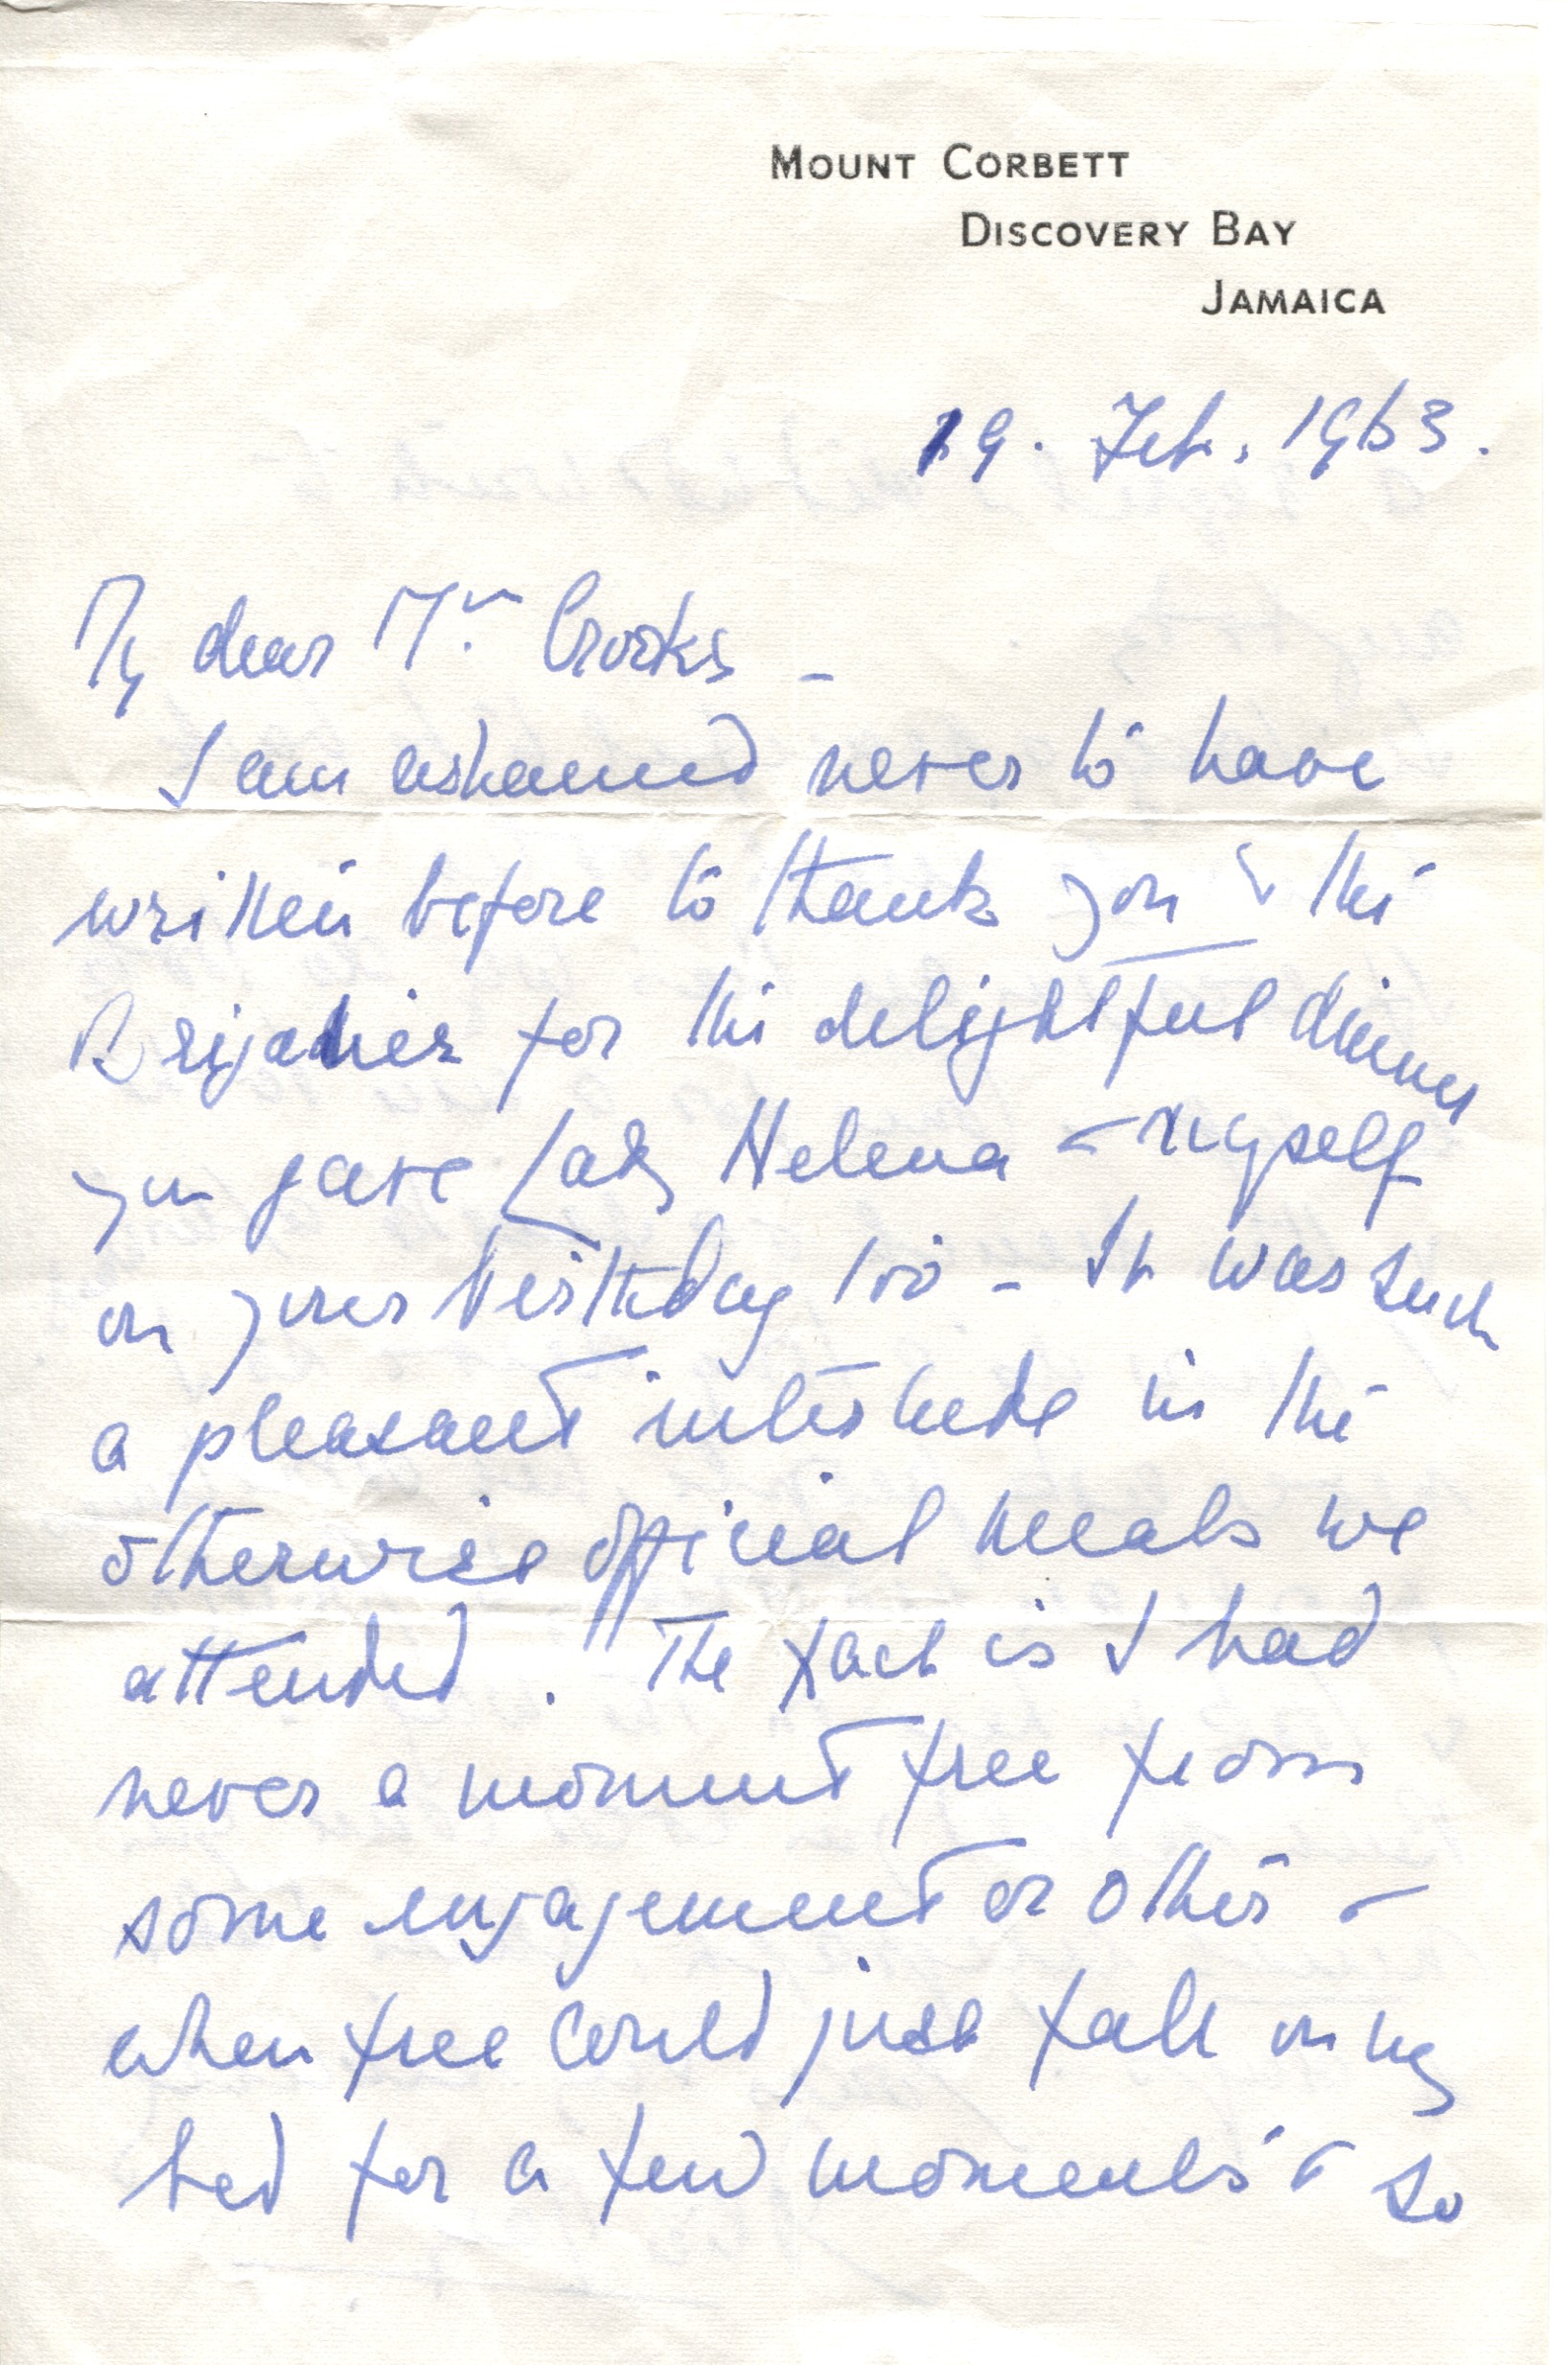 MOUNT CORBETT
DISCOVERY BAY
JAMAICA
19. Feb. 1963.
My dear Mr. Crooks -
I am ashamed never to have
written before to thank you & the
Brigadier for the delightful dinner
you gave Lady Helena & myself
on your birthday too - It was such
a pleasant interlude in the
otherwise official meals we
attended. The fact is I had
never a moment free from
some engagement or other &
when free could just fall on my
bed for a few moments & so